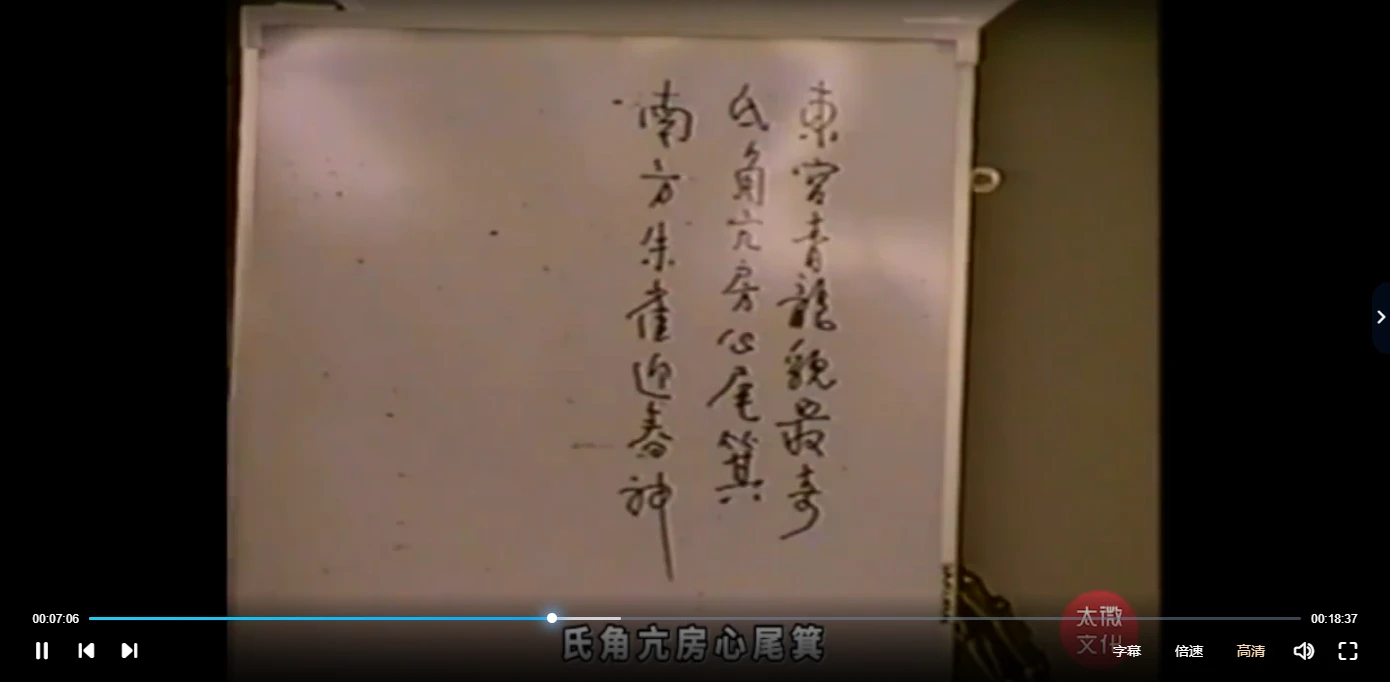 東宮青龍貌最奇
氐角亢房心尾箕
南方朱雀迎春神
00:07:06
00:18:37
氐角亢房心尾箕
太微
文化
字幕
倍速
高清